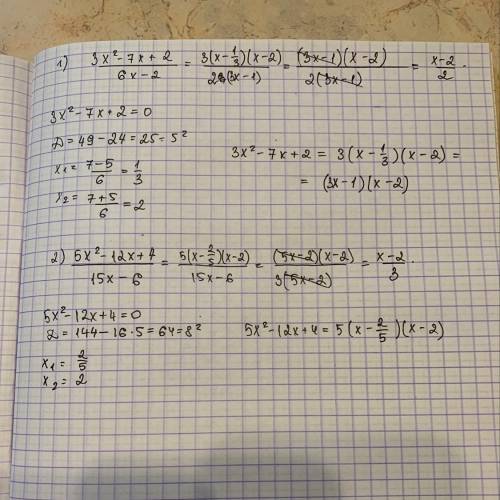 1) (3x²-7x+2)/(6x-2) = 3(x-1/3)(x-2)/2(3x-1) = (3x-1)(x-2)/2(3x-1) = (x-2)/2.
3x²-7x+2=0
D=49-24=25=5²
x₁=(7-5)/6=1/3
x₂=(7+5)/6=2
3x²-7x+2 = 3(x-1/3)(x-2) =
= (3x-1)(x-2)
2) (5x²-12x+4)/(15x-6) = 5(x-2/5)(x-2)/(15x-6) = (5x-2)(x-2)/3(5x-2) = (x-2)/3.
5x²-12x+4=0
D=144-16·5=64=8²
x₁=2/5
x₂=2
5x²-12x+4=5(x-2/5)(x-2)